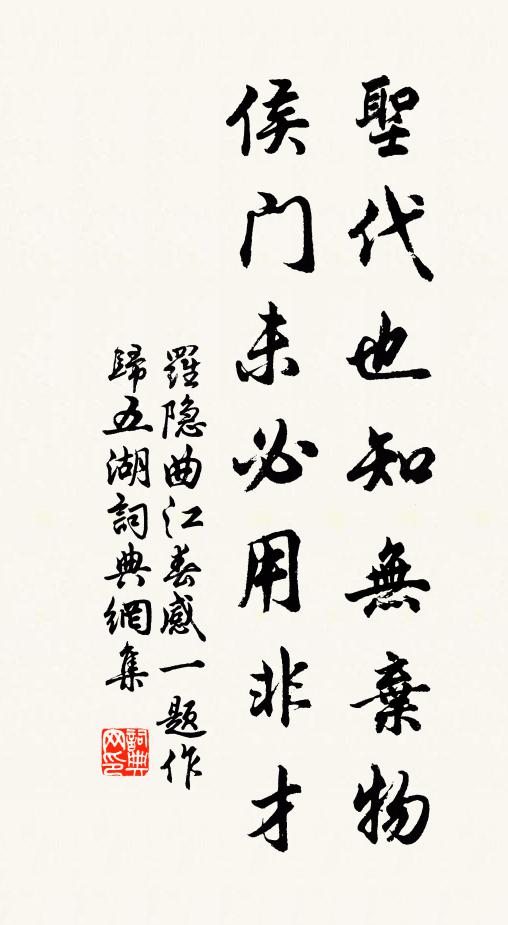 聖代也知無棄物
侯門未必用非才
羅隐曲江春感一題作
歸五湖詞典網集
詞典网印